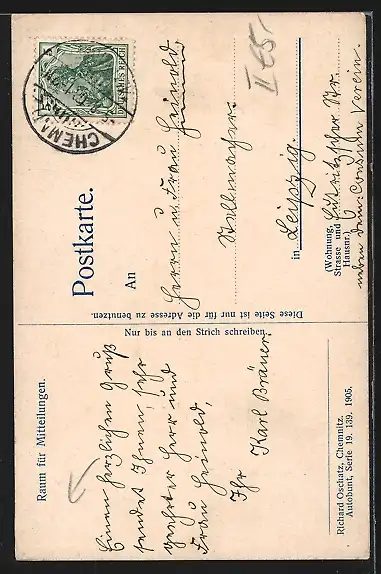 Raum für Mitteilungen.
Einen herzlichen Gruß
sendet Ihnen, sehr
geehrter Herr und
Frau Heinold,
Ihr Karl Bräuer
Richard Oschatz, Chemnitz.
Autobunt, Serie 19. 139. 1905.
Nur bis an den Strich schreiben.
Diese Seite ist nur für die Adresse zu benutzen.
Postkarte.
DEUTSCHES REICH
CHEMNITZ
An
Herrn u. Frau Heinold,
Stellmacher
in Leipzig
(Wohnung, Strasse und Hausnr.)
Str.
neben dem Consum Verein.
II 65.-